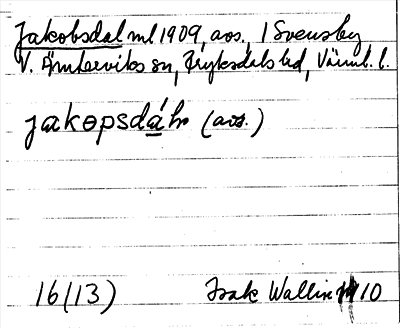 Jakobsdal ml 1909, avs., 1 Svensby
V. Ämterviks sn, Fryksdals hd, Värml. l.
jakopsdáln (avs.)
16/13) Isak Wallin 10